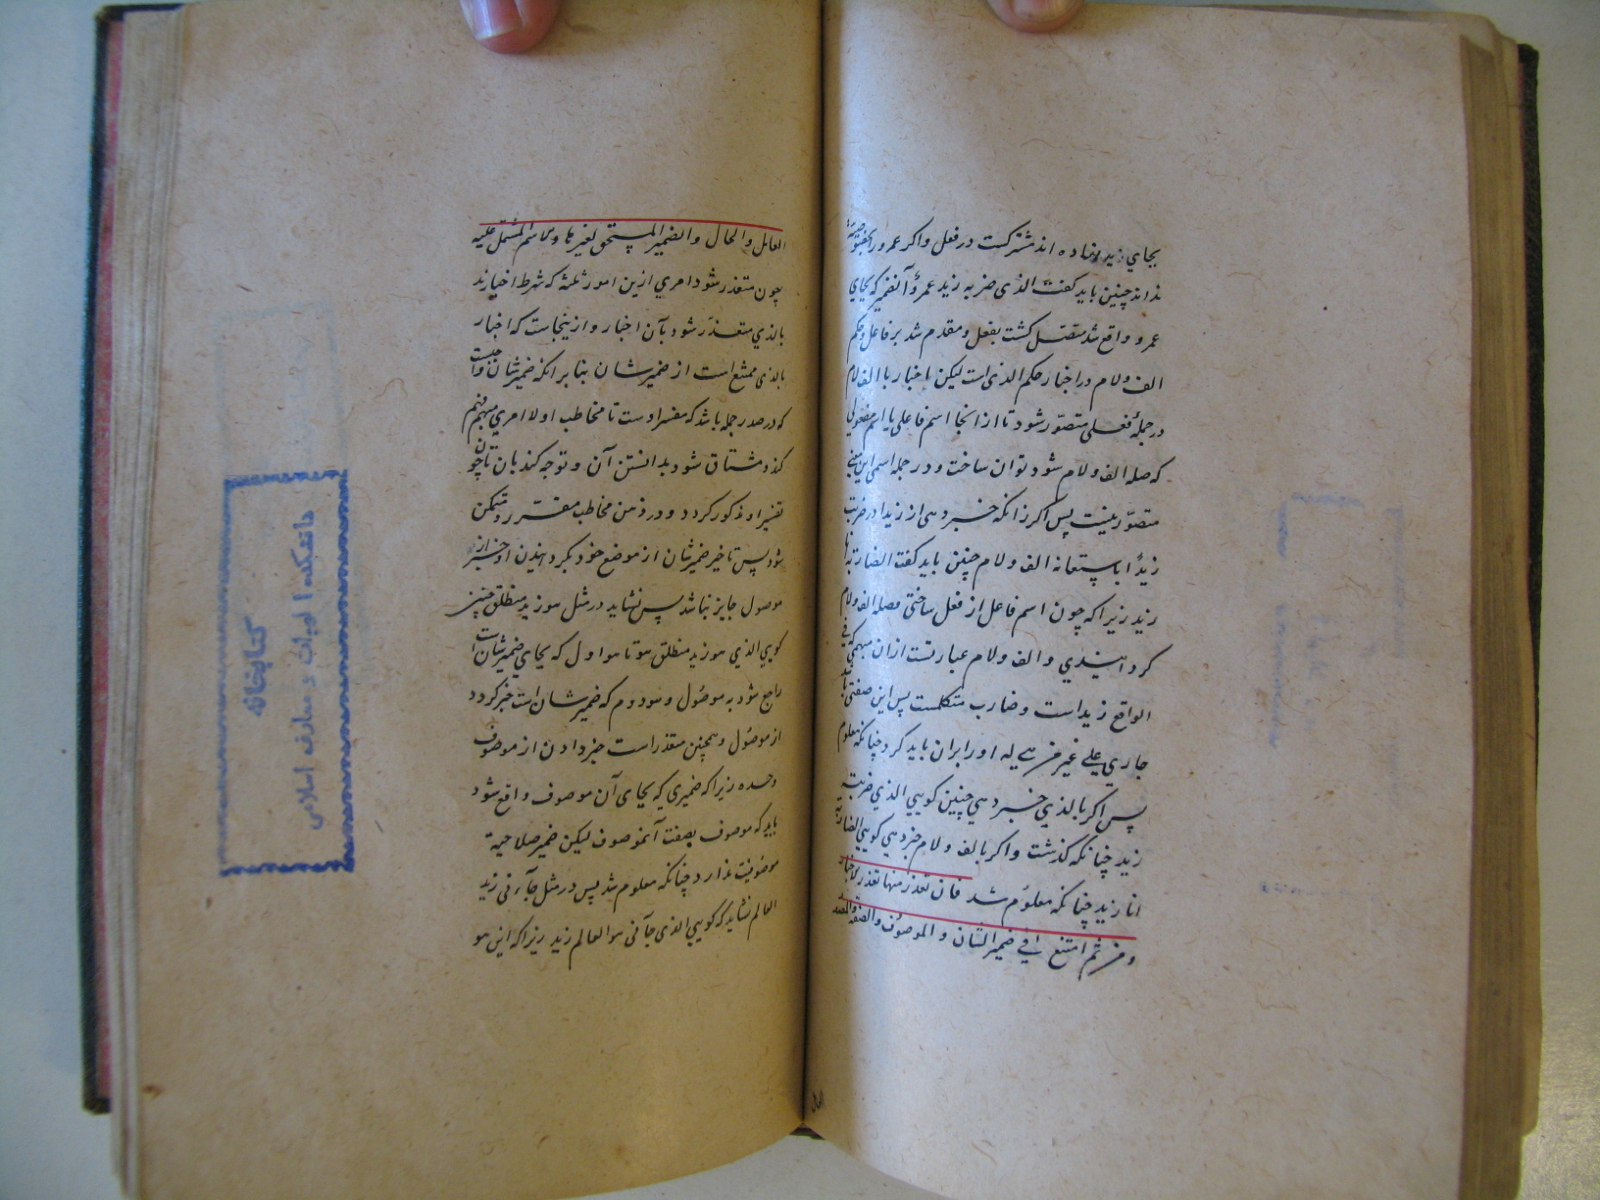 بجاي زید نهاده اند مشترکست در فعل و اکر عمرو را
نداند چنین باید کفت الذی ضربه زید عمروٌ آنضمیر که بجای
عمرو واقع شد متصل کشت بفعل و مقدم شد بر فاعل و حکم
الف و لام در اخبار حکم الذی است لیکن اخبار با الف لام
در جملهٔ فعلی متصوّر شود تا از انجا اسم فاعلی یا اسم مفعولی
که صله الف و لام شود توان ساخت و در جمله اسمی این معنی
متصوّر نیست پس اکر زانکه خبر دهی از زیدا در ضربت
زیداً باستعانه الف و لام چنین باید کفت الضاربه انا
زید زیرا که چون اسم فاعل از فعل ساختی و صله الف و لام
کردانیدی و الف و لام عبارتست ازان مبهمی که فی
الواقع زید است و ضارب متکلمست پس این صفتی باشد
جاری علی غیر من هی له اورا بران باید کرد چنانکه معلوم
پس اکر بالذی خبر دهی چنین کویی الذی ضربت
زید چنانکه کذشت و اکر بالف و لام خبر دهی کویی الضاربه
انا زید چنانکه معلوم شد فان تعذر منها تعذر الاخبار
و من ثم امتنع فی ضمیر الشان و الموصوف و الصفة و المصدر
العامل و الحال و الضمیر المستحق لغیرها و الاسم المشتمل علیه
چون متعذر شود امري ازین امور ثلثه که شرط اخبارند
بالذي متعذّر شود بآن اخبار و ازینجاست که اخبار
بالذی ممتنع است از ضمیر شان بنا بر انکه ضمیر شان واجبست
که در صدر جمله باشد که مفسر اوست تا مخاطب اولا امري مبهم فهم
کند و مشتاق شود بدانستن آن و توجه کند بان تا چون
تفسیر او مذکور کردد و در ذهن مخاطب مقرر و متمکن
شود پس تاخیر ضمیر شان از موضع خود و بکردانیدن او خبر از
موصول جایز نباشد پس نشاید در مثل هو زید منطلق چنین
کویی الذي هو زید منطلق هو تا هو اول که بجاي ضمیر شان است
راجع شود به موصُول و هو دوم که ضمیر شان است خبر کردد
از موصُول و همچنین متعذر است خبر دادن از موصوف
وحده زیرا که ضمیری که بجای آن موصوف واقع شود
باید که موصوف بصفت آنموصوف لیکن ضمیر صلاحیة
موصُوفیت ندارد چنانکه معلوم شد پس در مثل جآءنی زید
العالم نشاید که کویی الذی جآنی هو العالم زید زیرا که این هو
کتابخانه
دانشکده الهیات و معارف اسلامی